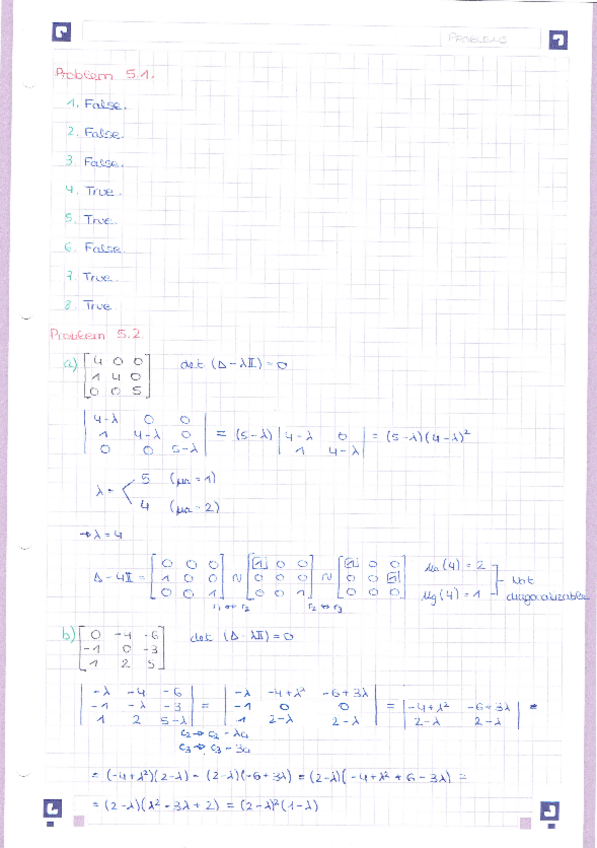 PROBLEMS
Problem 5.1.
1. False.
2. False.
3. False.
4. True.
5. True.
6. False.
7. True.
8. True.
Problem 5.2
a) [4 0 0; 1 4 0; 0 0 5] det (A - λII) = 0
|4-λ 0 0; 1 4-λ 0; 0 0 5-λ| = (5-λ) |4-λ 0; 1 4-λ| = (5-λ)(4-λ)²
λ = < 5 (μa = 1)
4 (μa = 2)
→ λ = 4
A - 4II = [0 0 0; 1 0 0; 0 0 1] ≈ [1 0 0; 0 0 0; 0 0 1] ≈ [1 0 0; 0 0 1; 0 0 0] μa(4) = 2
μg(4) = 1
Not diagonalizable
r₁ ↔ r₂ r₂ ↔ r₃
b) [0 -4 -6; -1 0 -3; 1 2 5] det (A - λII) = 0
|-λ -4 -6; -1 -λ -3; 1 2 5-λ| = |-λ -4+λ² -6+3λ; -1 0 0; 1 2-λ 2-λ| = |-4+λ² -6+3λ; 2-λ 2-λ| =
c₂ → c₂ - λc₁
c₃ → c₃ - 3c₁
= (-4+λ²)(2-λ) - (2-λ)(-6+3λ) = (2-λ)(-4+λ²+6-3λ) =
= (2-λ)(λ²-3λ+2) = (2-λ)²(1-λ)